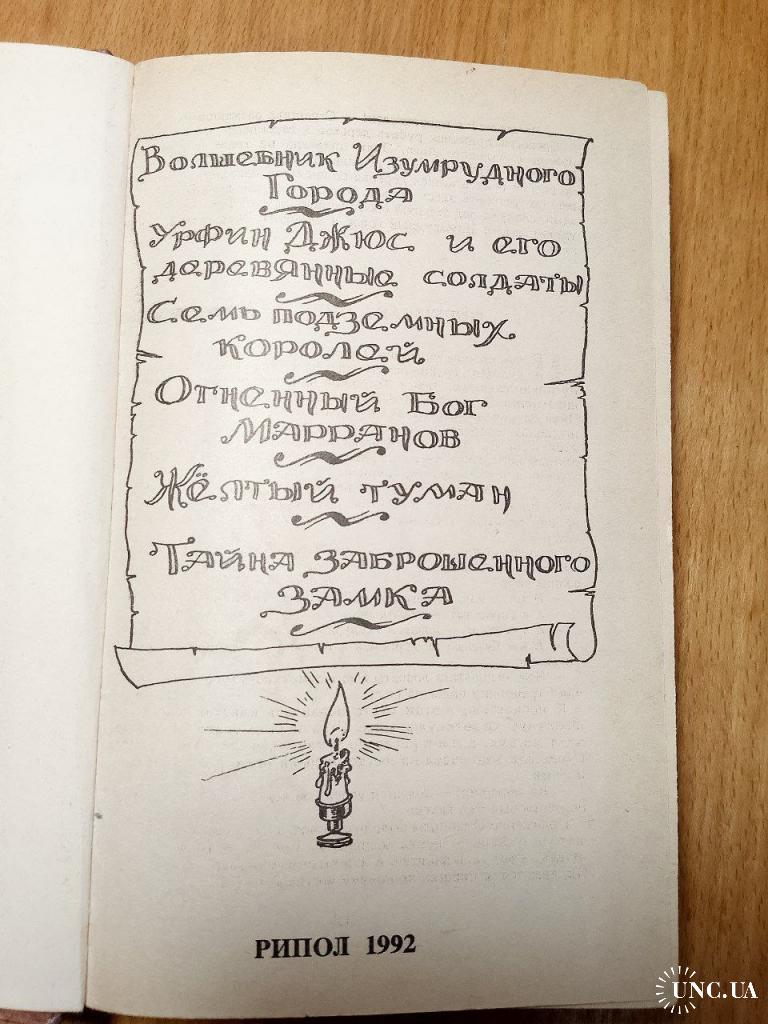 Волшебник Изумрудного
Города
Урфин Джюс и его
деревянные солдаты
Семь подземных
королей
Огненный Бог
Марранов
Жёлтый туман
Тайна заброшенного
замка
РИПОЛ 1992
UNC.UA